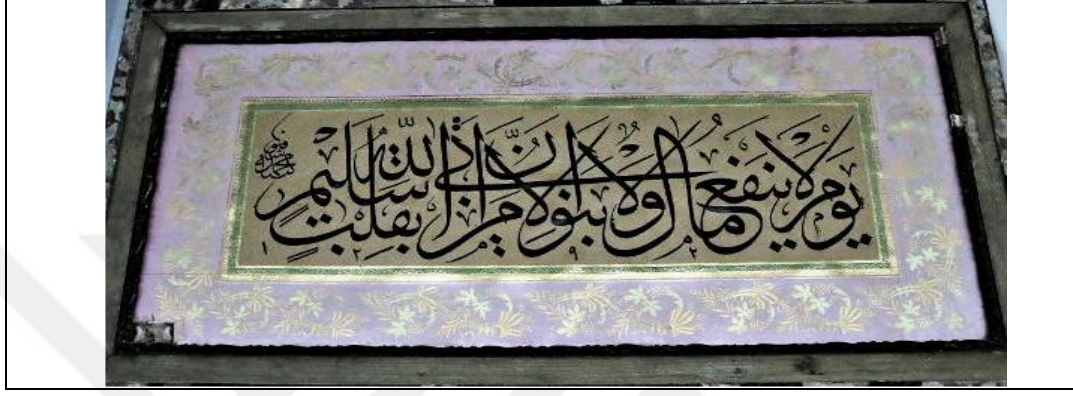 يوم لا ينفع مال ولا بنون إلا من أتى الله بقلب سليم
١٢٩٢